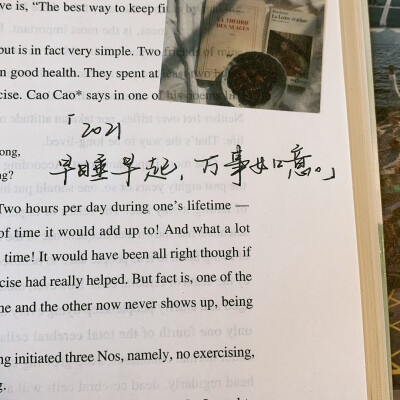 ve is, "The best way to keep fit is by
but is in fact very simple. Two
n good health. They spent at
cise. Cao Cao* says in one of his poems
LA THÉORIE
DES NUAGES
ong,
ng?
「2021
早睡早起，万事如意。」
Two hours per day during one's lifetime —
of time it would add up! And what a lot
time! It would have been all right though if
cise had really helped. But fact is, one of the
me and the other now never shows up, being
ng initiated three Nos, namely, no exercising,
g.